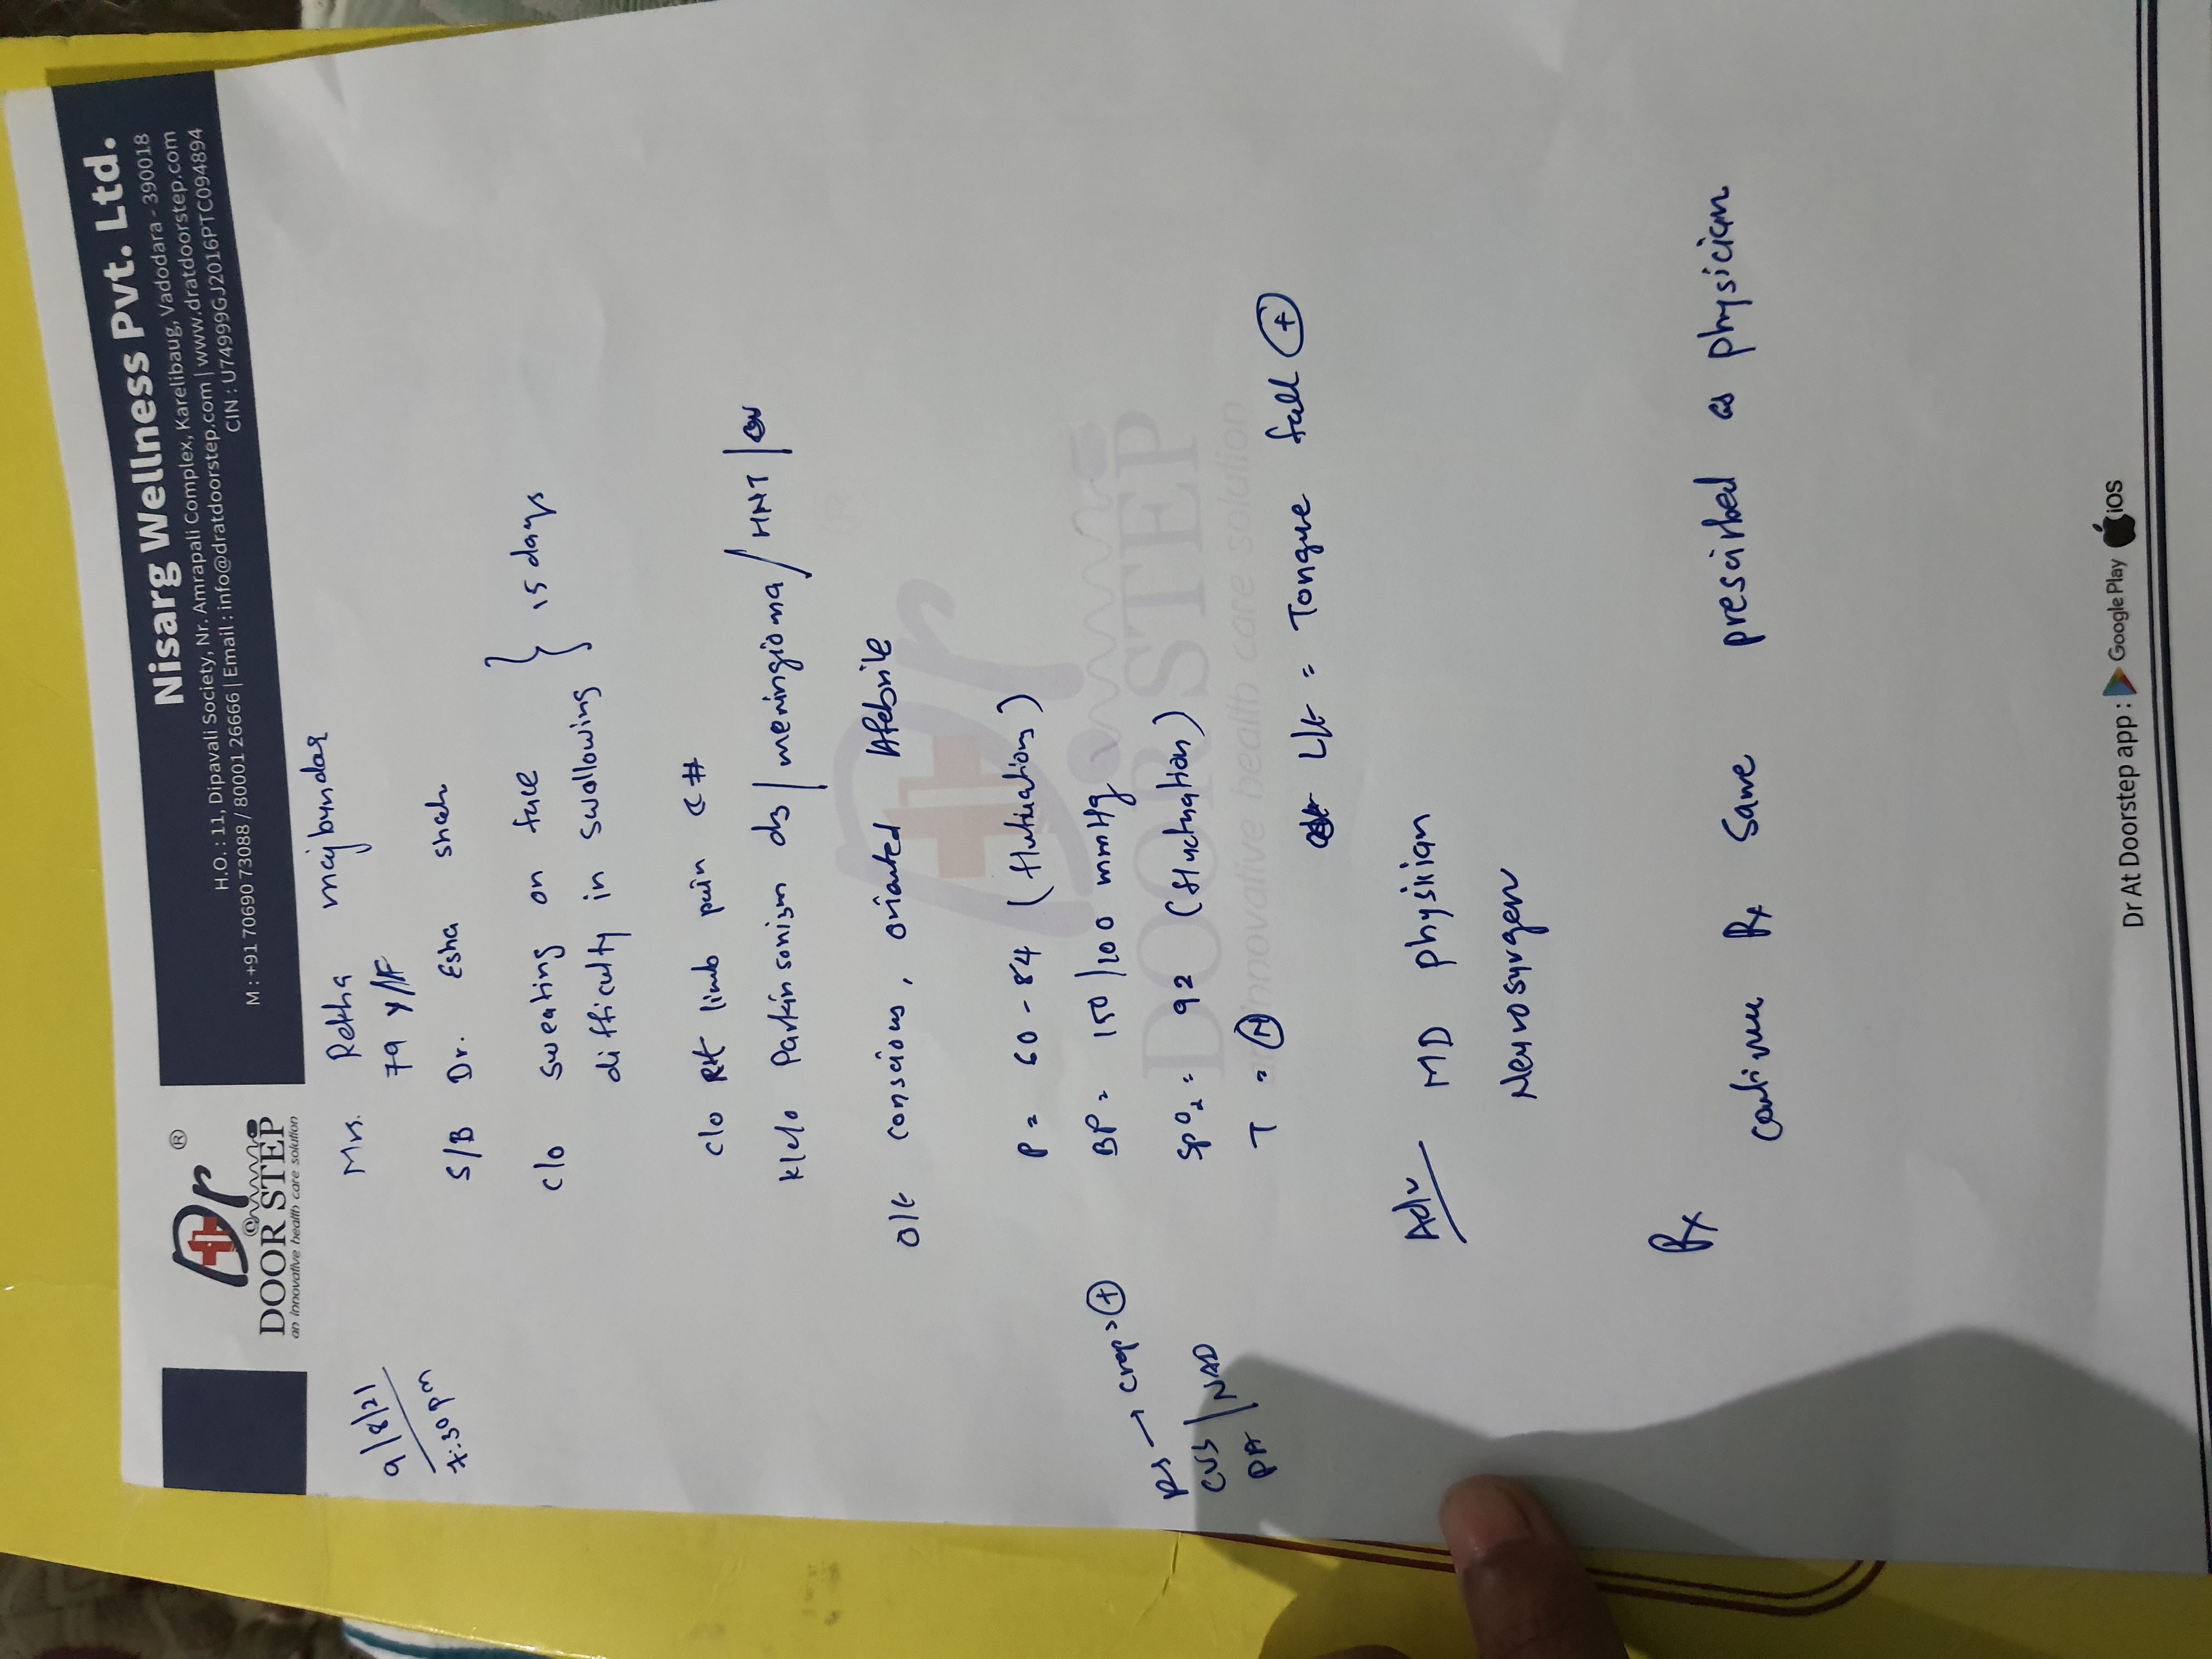 Dr ®
@
DOOR STEP
an innovative health care solution
Nisarg Wellness Pvt. Ltd.
H.O. : 11, Dipavali Society, Nr. Amrapali Complex, Karelibaug, Vadodara - 390018
M : +91 70690 73088 / 80001 26666 | Email : info@dratdoorstep.com | www.dratdoorstep.com
CIN : U74999GJ2016PTC094894
9/8/21
7:30 pm
Mrs. Rekha majbundar
79 Y/F
S/B Dr. Esha shah
c/o sweating on face
difficulty in swallowing } 15 days
c/o Rt limb pain #
k/c/o Parkinsonism ds / meningioma / HNT /
O/E conscious, oriented Afebrile
P = 60 - 84 (flutuations)
BP = 150/100 mmHg
SpO2 = 92 (fluctuation)
T = N
RS → creps +
CVS
PA / NAD
L/E = Tongue fall +
Adv MD physician
Neurosurgen
Rx
continue Rx Same prescirbed as physician
Dr
DOOR STEP
an innovative health care solution
Dr At Doorstep app : Google Play iOS